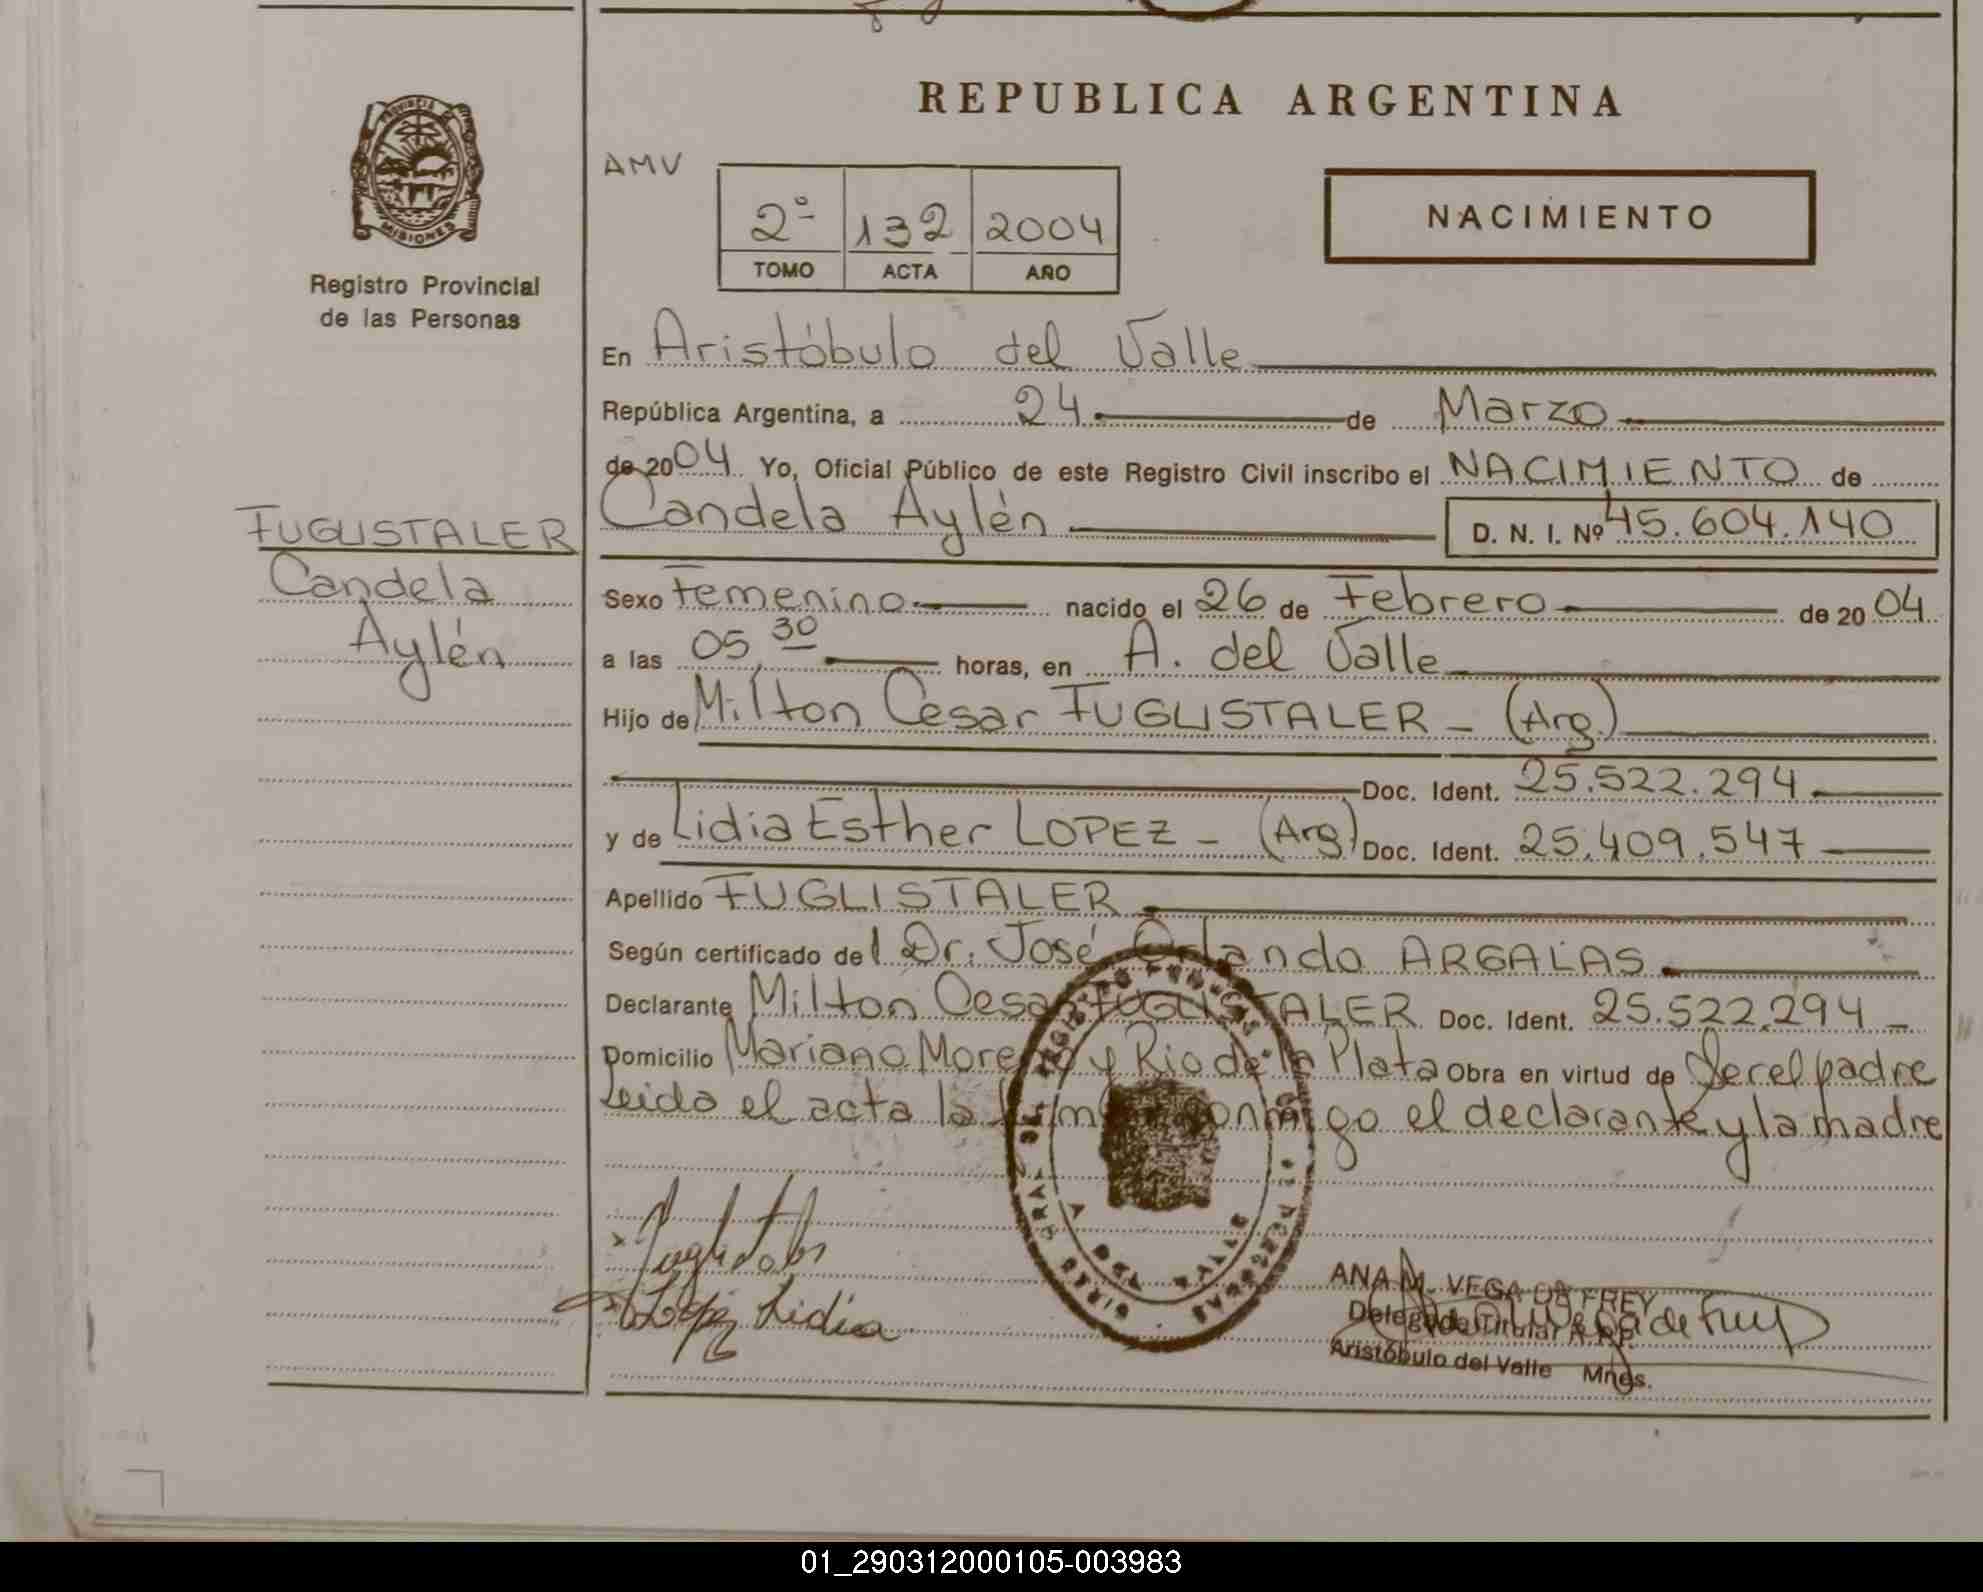 PROVINCIA DE
MISIONES
Registro Provincial
de las Personas
FUGLISTALER
Candela
Aylén
REPUBLICA ARGENTINA
AMV
2º 132 2004
TOMO ACTA AÑO
NACIMIENTO
En Aristóbulo del Valle
República Argentina, a 24 de Marzo
de 2004 Yo, Oficial Público de este Registro Civil inscribo el NACIMIENTO de
Candela Aylén D. N. I. Nº 45.604.140
Sexo Femenino nacido el 26 de Febrero de 2004
a las 05,30 horas, en A. del Valle
Hijo de Milton Cesar FUGLISTALER - (Arg.)
Doc. Ident. 25.522.294
y de Lidia Esther LOPEZ - (Arg) Doc. Ident. 25.409.547
Apellido FUGLISTALER
Según certificado del Dr. José Orlando ARGALAS
Declarante Milton Cesar FUGLISTALER Doc. Ident. 25.522.294
Domicilio Mariano Moreno y Rio de la Plata Obra en virtud de Ser el padre
Leido el acta la firman conmigo el declarante y la madre
Lopez Lidia
A. DEL VALLE
ANA M. VEGA DE FREY
Delegada Titular R.P.P.
Aristóbulo del Valle Mnes.
01_290312000105-003983